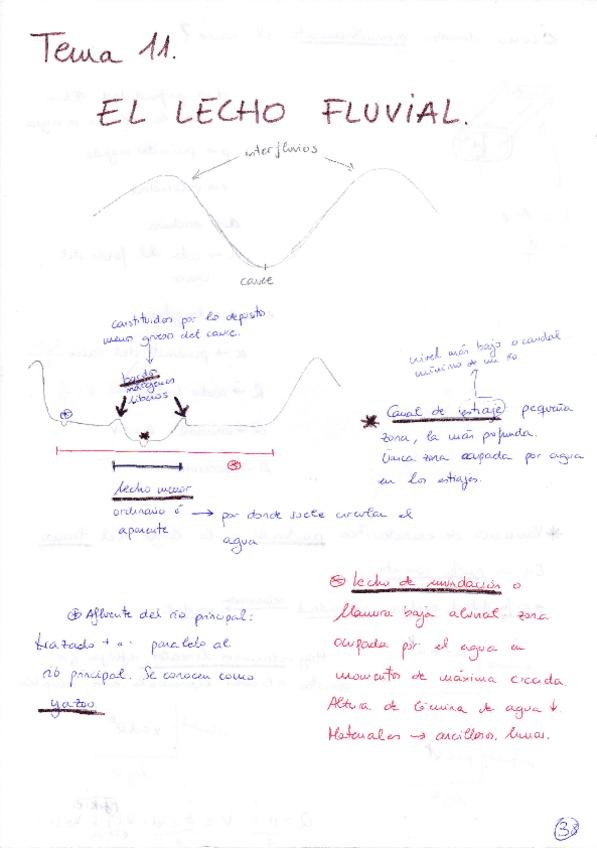 Tema 11.
EL LECHO FLUVIAL.
interfluvios
cauce
constituidos por los depósitos
menos gruesos del cauce.
bordes
márgenes
ribereños
nivel más bajo o caudal
mínimo de un río
* Canal de estiaje pequeña
zona, la más profunda.
Única zona ocupada por agua
en los estiajes.
lecho menor
ordinario ó → por donde suele circular el
aparente agua
⊛ Lecho de inundación o
llanura baja aluvial: zona
ocupada por el agua en
momentos de máxima crecida.
Altura de lámina de agua ↓.
Materiales → arcillosos, limos.
⊕ Afluente del río principal:
trazado + o - paralelo al
río principal. Se conocen como
yazoo
38